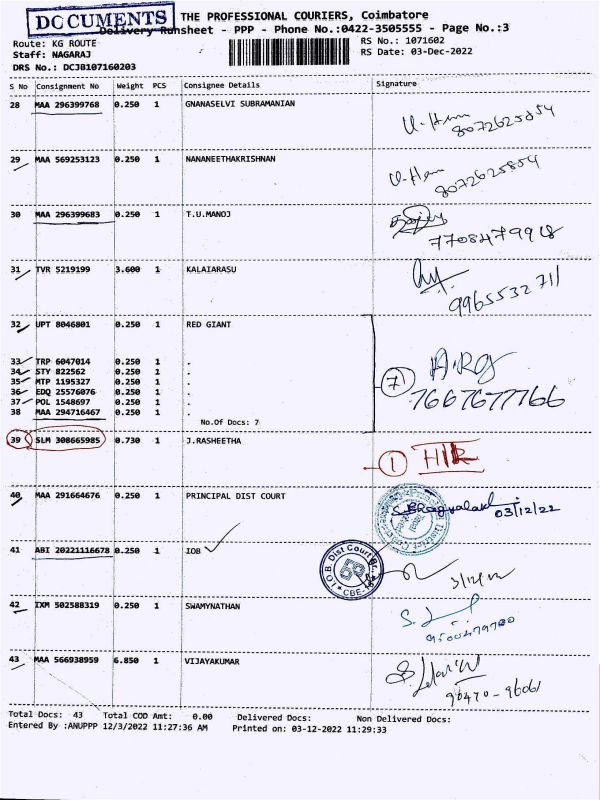 DOCUMENTS
THE PROFESSIONAL COURIERS, Coimbatore
Delivery Runsheet - PPP - Phone No.:0422-3505555 - Page No.:3
Route: KG ROUTE RS No.: 1071602
Staff: NAGARAJ RS Date: 03-Dec-2022
DRS No.: DCJB107160203
S No Consignment No Weight PCS Consignee Details Signature
28 MAA 296399768 0.250 1 GNANASELVI SUBRAMANIAN
8072625854
29 MAA 569253123 0.250 1 NANANEETHAKRISHNAN
8072625854
30 MAA 296399683 0.250 1 T.U.MANOJ
7708479918
31 TVR 5219199 3.600 1 KALAIARASU
9965532711
32 UPT 8046801 0.250 1 RED GIANT
33 TRP 6047014 0.250 1 .
34 STY 822562 0.250 1 .
35 MTP 1195327 0.250 1 .
36 EDQ 25576076 0.250 1 .
37 POL 1548697 0.250 1 .
38 MAA 294716467 0.250 1 .
No.Of Docs: 7
7 A.Rg
7667677766
39 SLM 308665985 0.730 1 J.RASHEETHA
1
40 MAA 291664676 0.250 1 PRINCIPAL DIST COURT
03/12/22
41 ABI 20221116678 0.250 1 IOB
I.O.B. Dist Court Br. CBE-18
42 IXM 502588319 0.250 1 SWAMYNATHAN
43 MAA 566938959 6.850 1 VIJAYAKUMAR
90470-96061
Total Docs: 43 Total COD Amt: 0.00 Delivered Docs: Non Delivered Docs:
Entered By :ANUPPP 12/3/2022 11:27:36 AM Printed on: 03-12-2022 11:29:33